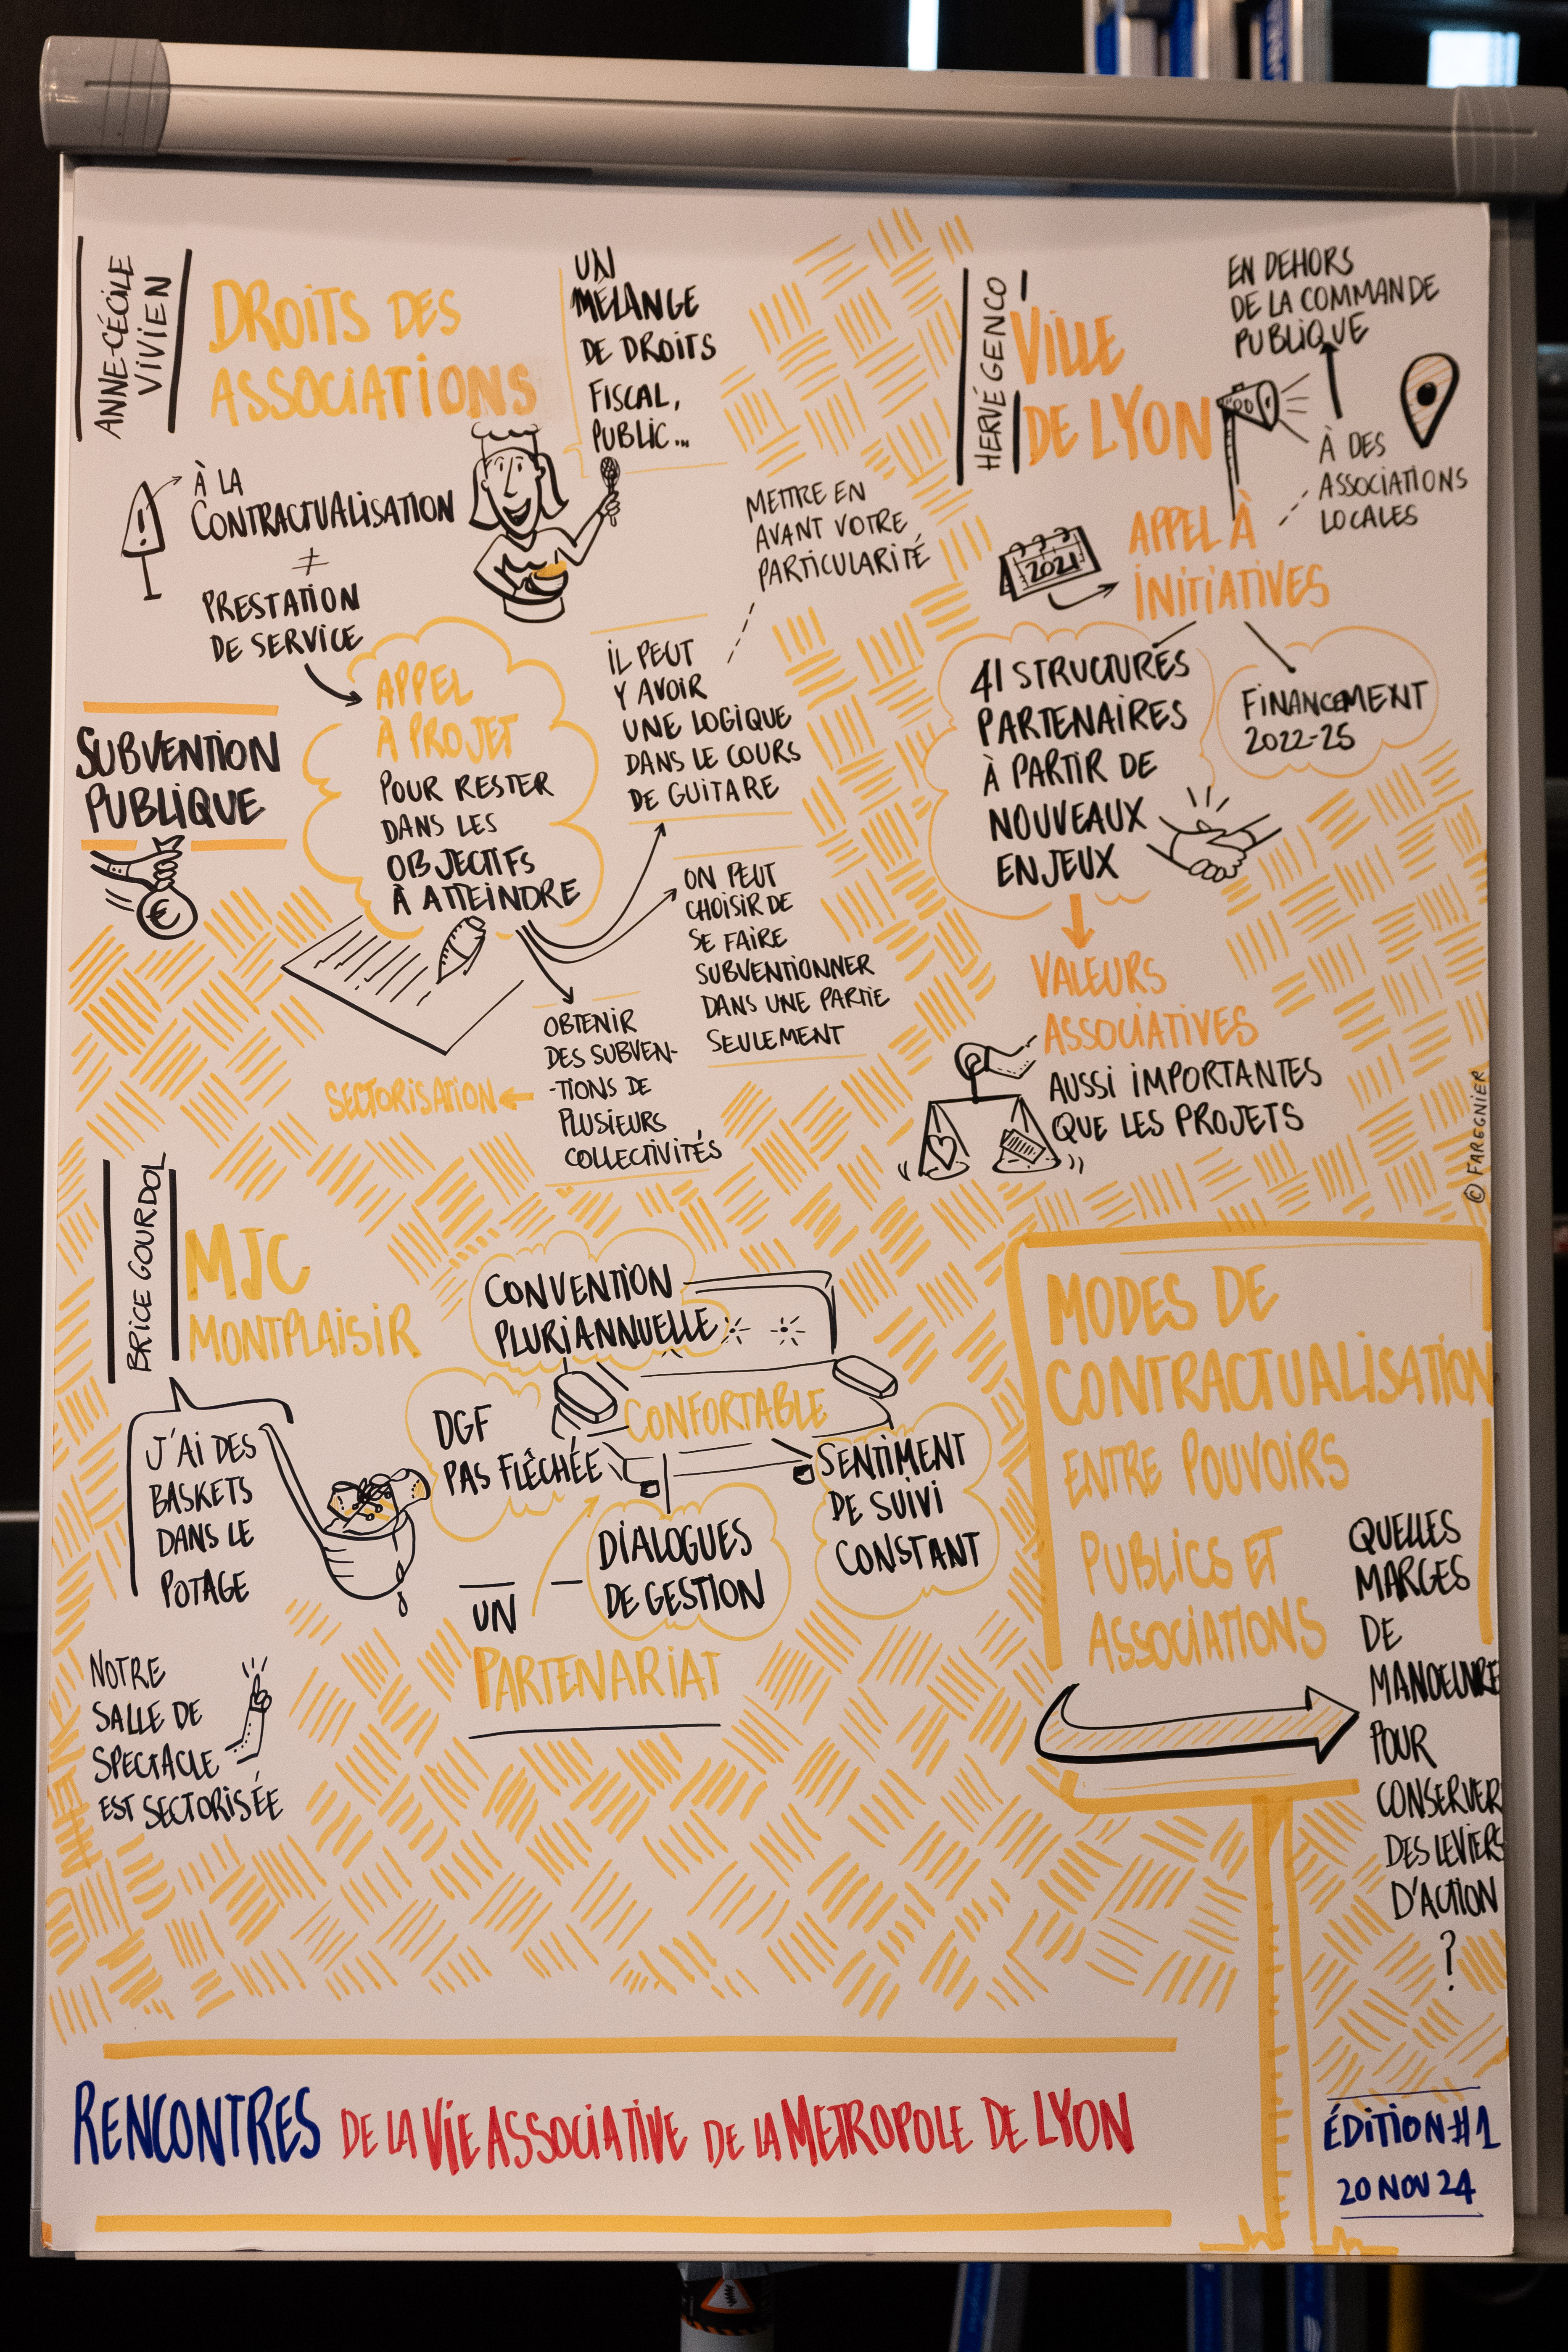 ANNE-CÉCILE
VIVIEN
DROITS DES
ASSOCIATIONS
UN
MÉLANGE
DE DROITS
FISCAL,
PUBLIC...
!
À LA
CONTRACTUALISATION
≠
PRESTATION
DE SERVICE
SUBVENTION
PUBLIQUE
€
APPEL
À PROJET
POUR RESTER
DANS LES
OBJECTIFS
À ATTEINDRE
METTRE EN
AVANT VOTRE
PARTICULARITÉ
IL PEUT
Y AVOIR
UNE LOGIQUE
DANS LE COURS
DE GUITARE
ON PEUT
CHOISIR DE
SE FAIRE
SUBVENTIONNER
DANS UNE PARTIE
SEULEMENT
OBTENIR
DES SUBVEN-
-TIONS DE
PLUSIEURS
COLLECTIVITÉS
SECTORISATION
HERVÉ GENCO
VILLE
DE LYON
EN DEHORS
DE LA COMMANDE
PUBLIQUE
À DES
ASSOCIATIONS
LOCALES
2021
APPEL À
INITIATIVES
41 STRUCTURES
PARTENAIRES
À PARTIR DE
NOUVEAUX
ENJEUX
FINANCEMENT
2022-25
VALEURS
ASSOCIATIVES
AUSSI IMPORTANTES
QUE LES PROJETS
© FAREGNIER
BRICE GOURDOL
MJC
MONTPLAISIR
J'AI DES
BASKETS
DANS LE
POTAGE
NOTRE
SALLE DE
SPECTACLE
EST SECTORISÉE
CONVENTION
PLURIANNUELLE
CONFORTABLE
DGF
PAS FLÊCHÉE
SENTIMENT
DE SUIVI
CONSTANT
DIALOGUES
DE GESTION
UN
PARTENARIAT
MODES DE
CONTRACTUALISATION
ENTRE POUVOIRS
PUBLICS ET
ASSOCIATIONS
QUELLES
MARGES
DE
MANOEUVRE
POUR
CONSERVER
DES LEVIERS
D'ACTION
?
RENCONTRES DE LA VIE ASSOCIATIVE DE LA METROPOLE DE LYON
ÉDITION #1
20 NOV 24